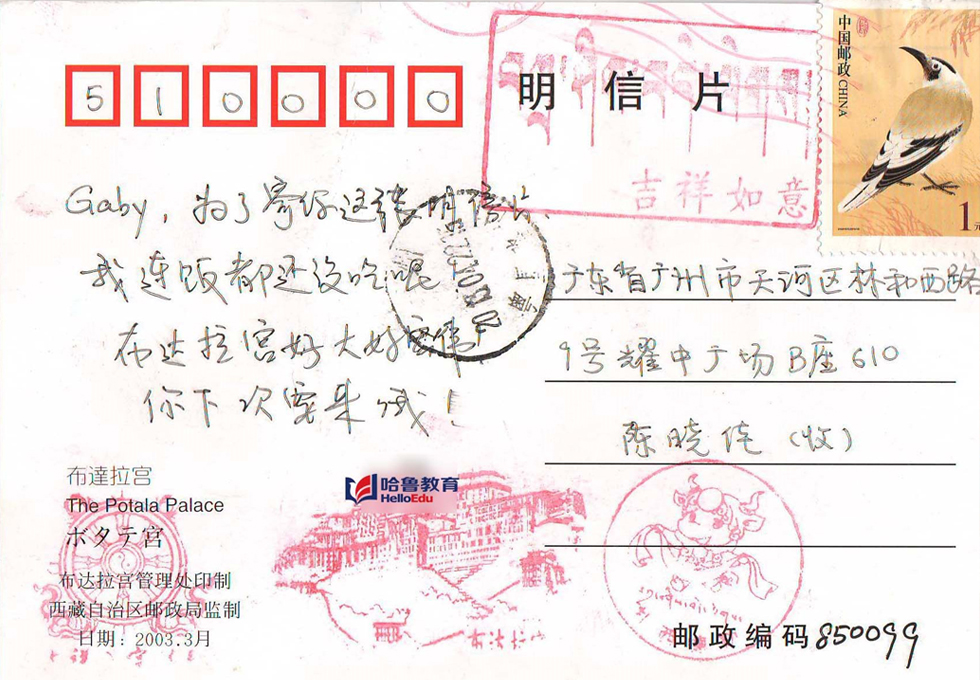 510000
明信片
吉祥如意
中国邮政 CHINA
1元
Gaby，为了寄你这张明信片、
我连饭都还没吃哦
布达拉宫好大好雄伟
你下次要来哦！
广东省广州市天河区林和西路
9号耀中广场B座610
陈晓佳（收）
布達拉宫
The Potala Palace
ボタテ宮
布达拉宫管理处印制
西藏自治区邮政局监制
日期：2003.3月
哈鲁教育
HelloEdu
邮政编码850099